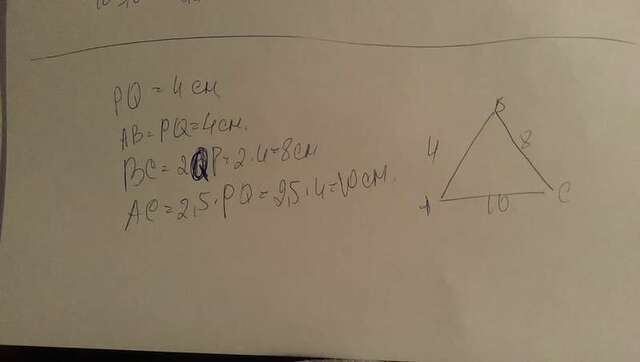 PQ = 4 см
AB = PQ = 4 см.
BC = 2QP = 2·4 = 8 см
AC = 2,5·PQ = 2,5·4 = 10 см.
B
4
8
A
10
C